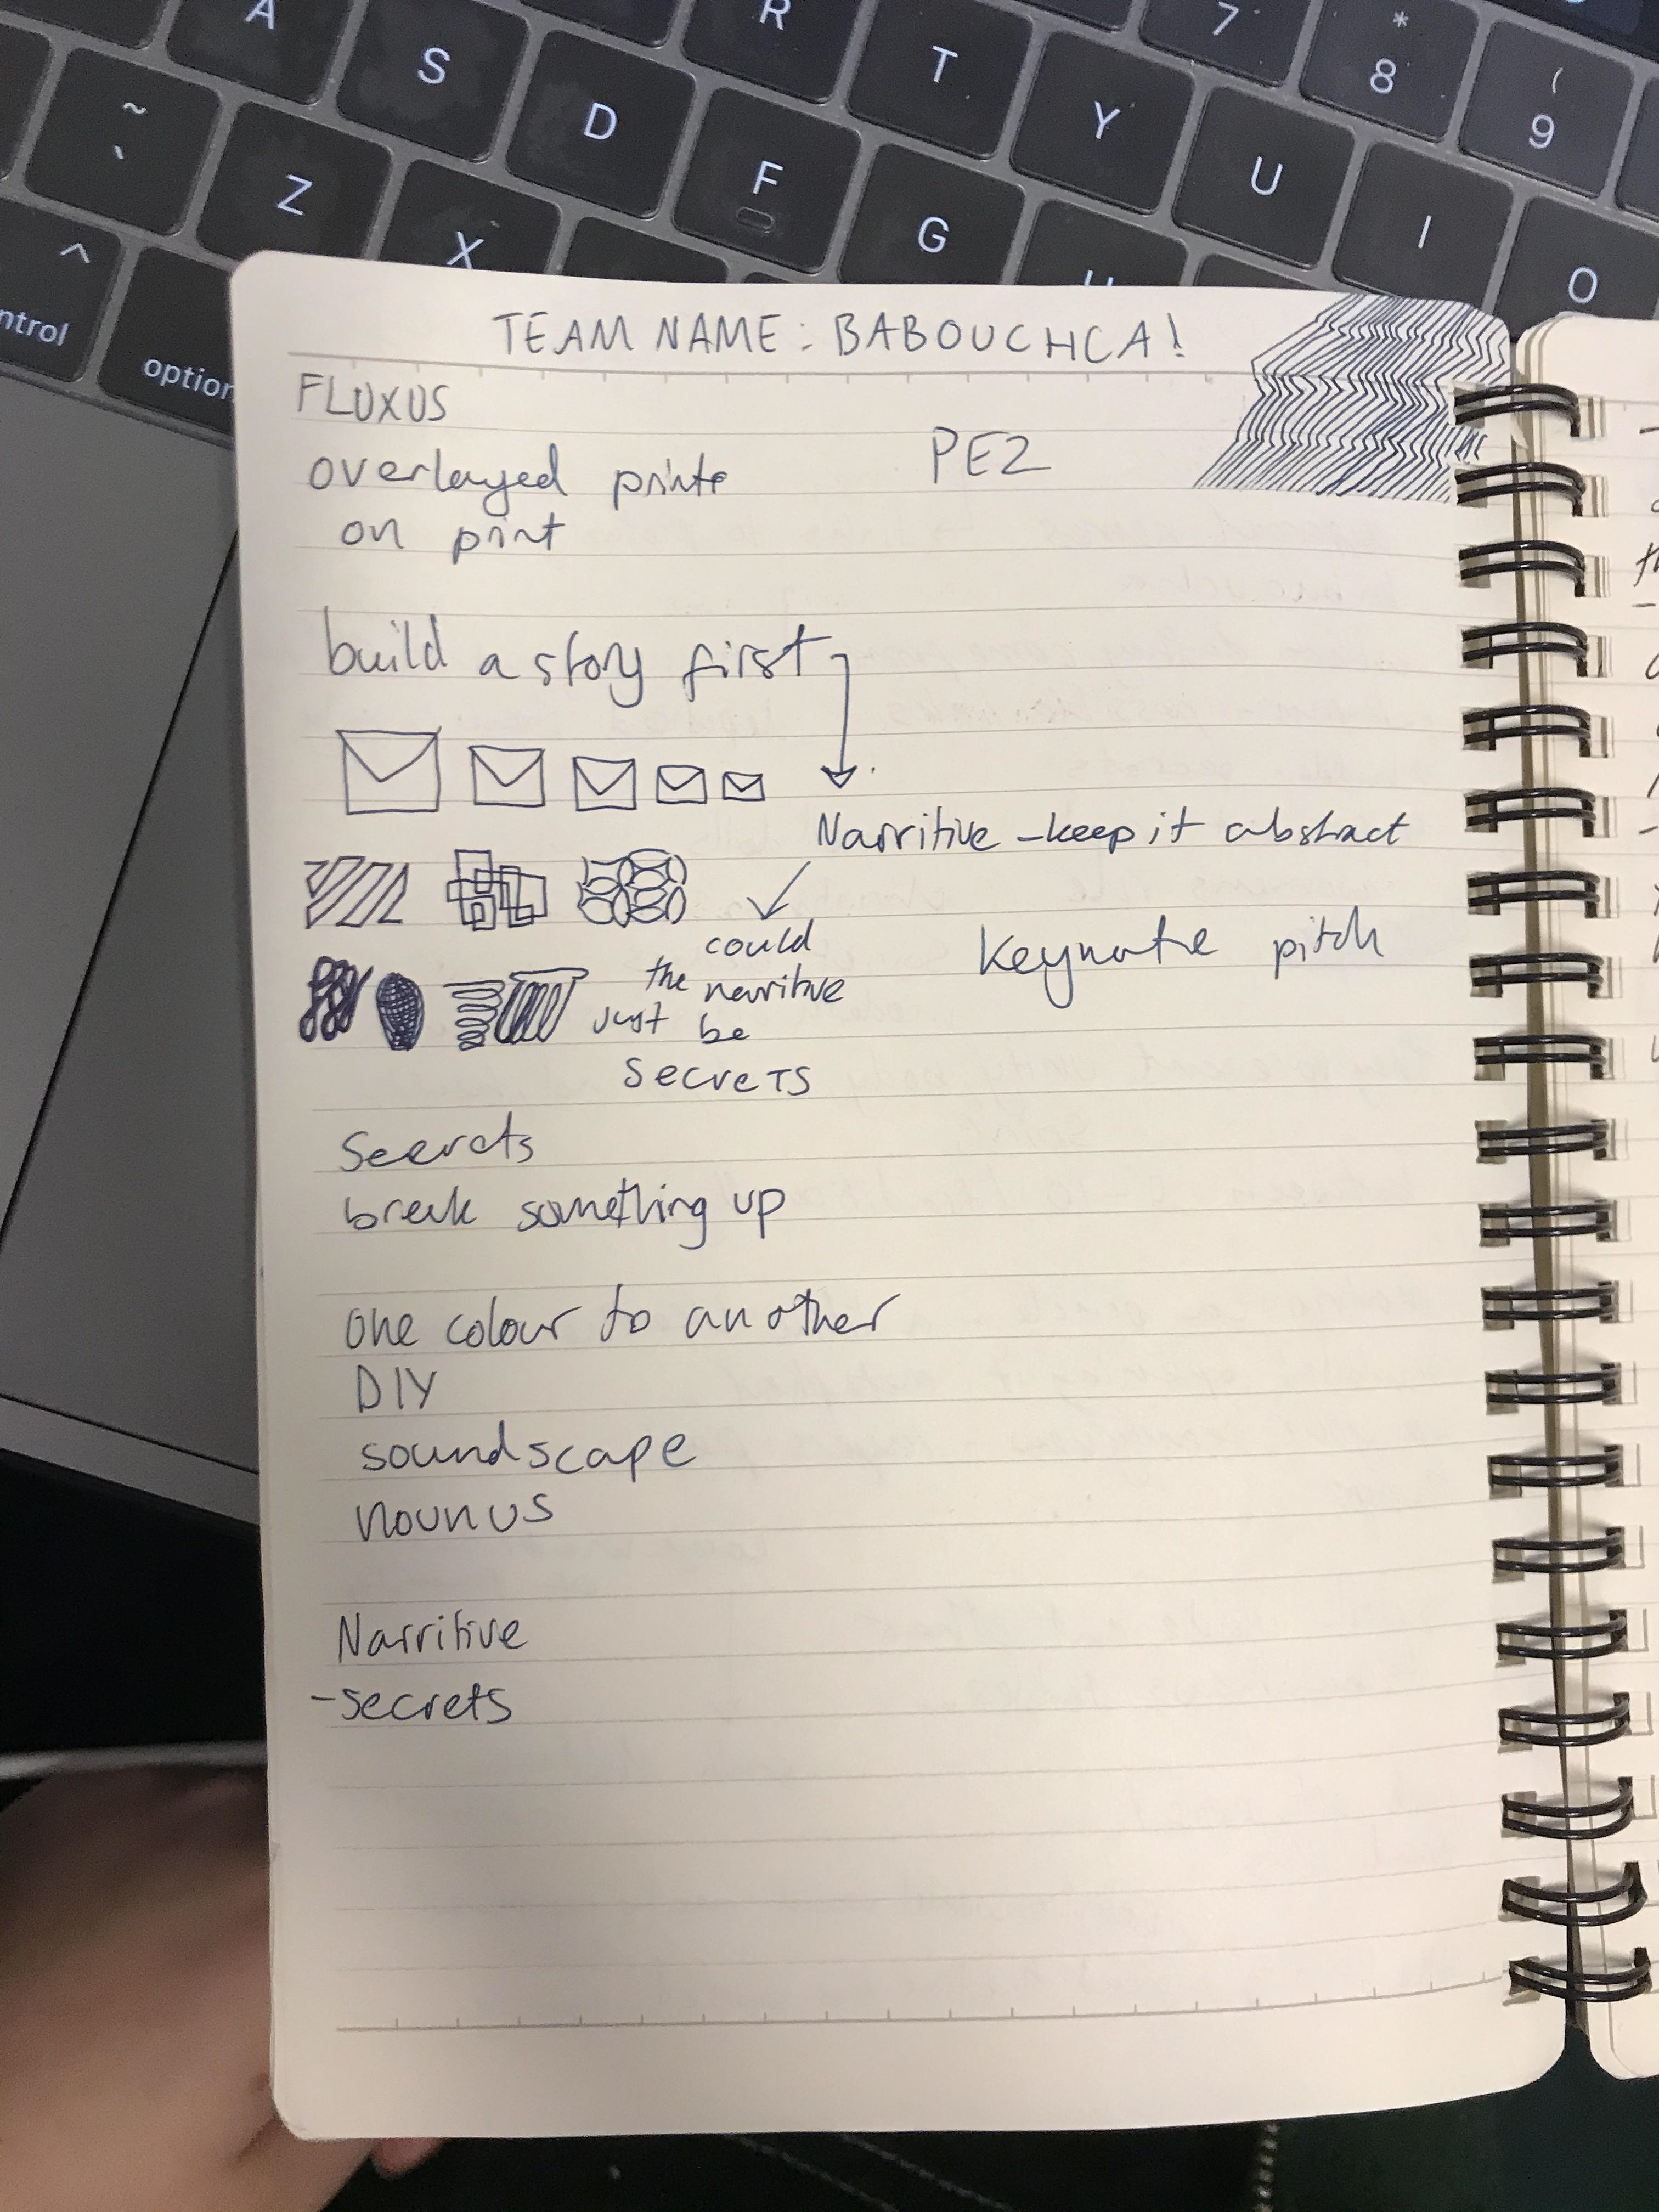 A
S
D
F
R
T
Y
7
*
8
(
9
~
`
Z
X
G
U
I
O
^
ntrol
option
TEAM NAME: BABOUCHCA!
FLUXUS
PE2
overlayed prints
on print
build a story first
Narritive - keep it abstract
could
the narritive
just be
SECRETS
Keynote pitch
Secrets
break something up
one colour to another
DIY
soundscape
Narritive
- secrets